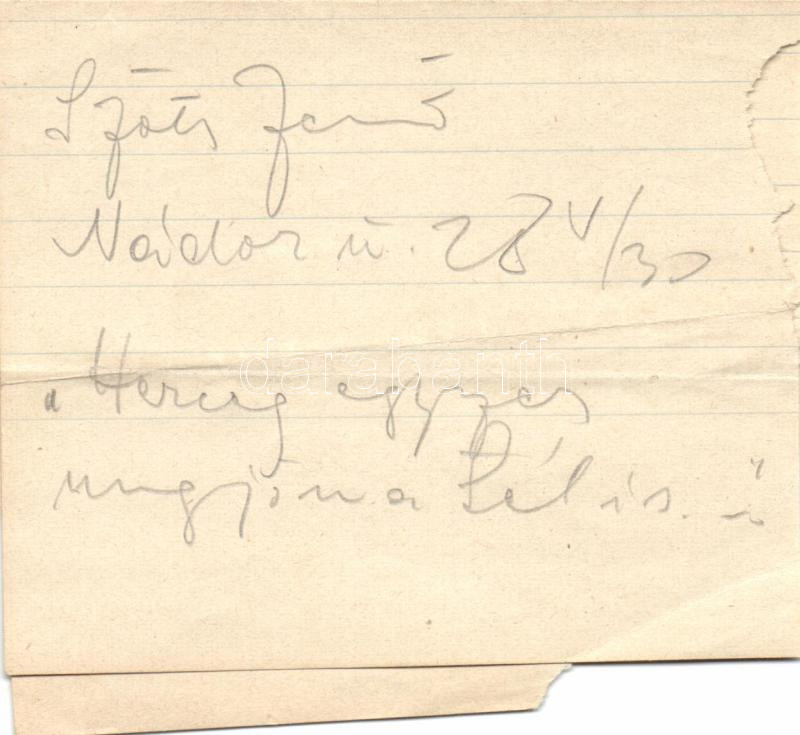 Szőts Jenő
Nádor u. 28 V/30
darabanth
"Herceg egyszer
megjön a Tél is..."